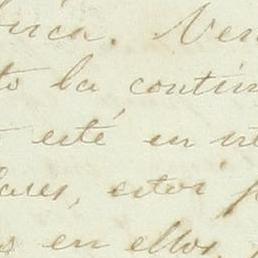 brica. Ven
to la contin
esté en
lares, estoi p
s en ellos,